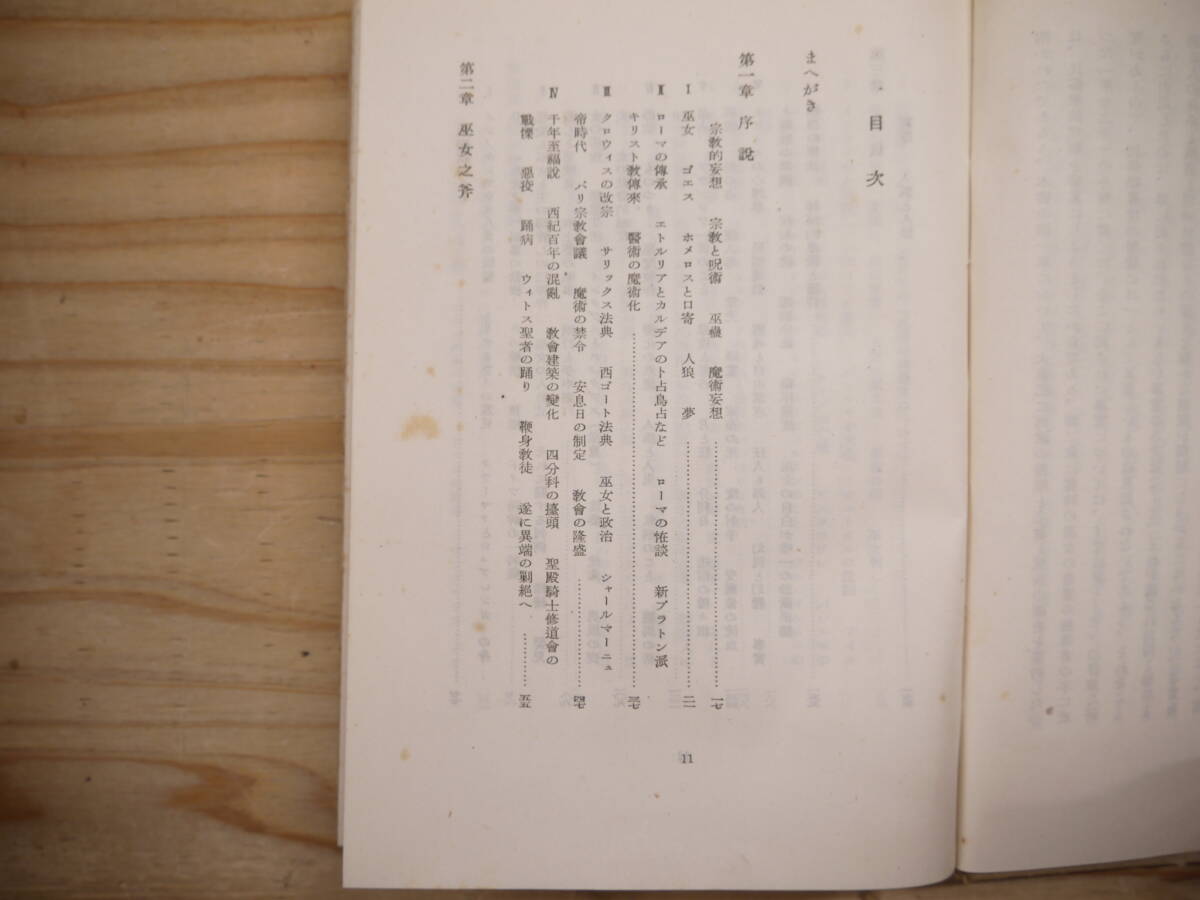 目次
まへがき
第一章 序說
宗敎的妄想 宗敎と呪術 巫蠱 魔術妄想……一七
I 巫女 ゴエス ホメロスと口寄 人狼 夢……二一
II ローマの傳承 エトルリアとカルデアの卜占鳥占など ローマの怪談 新プラトン派
キリスト敎傳來 醫術の魔術化……三七
III クロウィスの改宗 サリックス法典 西ゴート法典 巫女と政治 シャールマーニュ
帝時代 パリ宗敎會議 魔術の禁令 安息日の制定 敎會の隆盛……四七
IV 千年至福說 西紀百年の混亂 敎會建築の變化 四分科の擡頭 聖殿騎士修道會の
戰慄 惡疫 踊病 ウィトス聖者の踊り 鞭身敎徒 遂に異端の剿絕へ……五五
第二章 巫女之斧
11